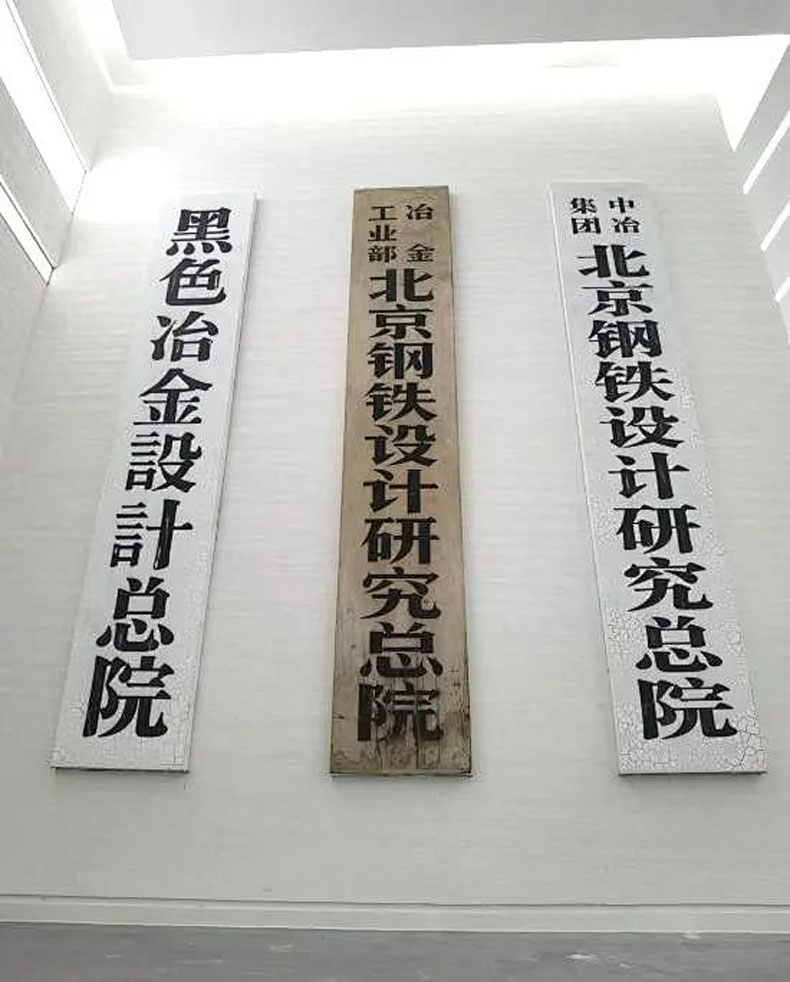 黑色冶金設計总院
冶金
工业部
北京钢铁设计研究总院
中冶
集团
北京钢铁设计研究总院